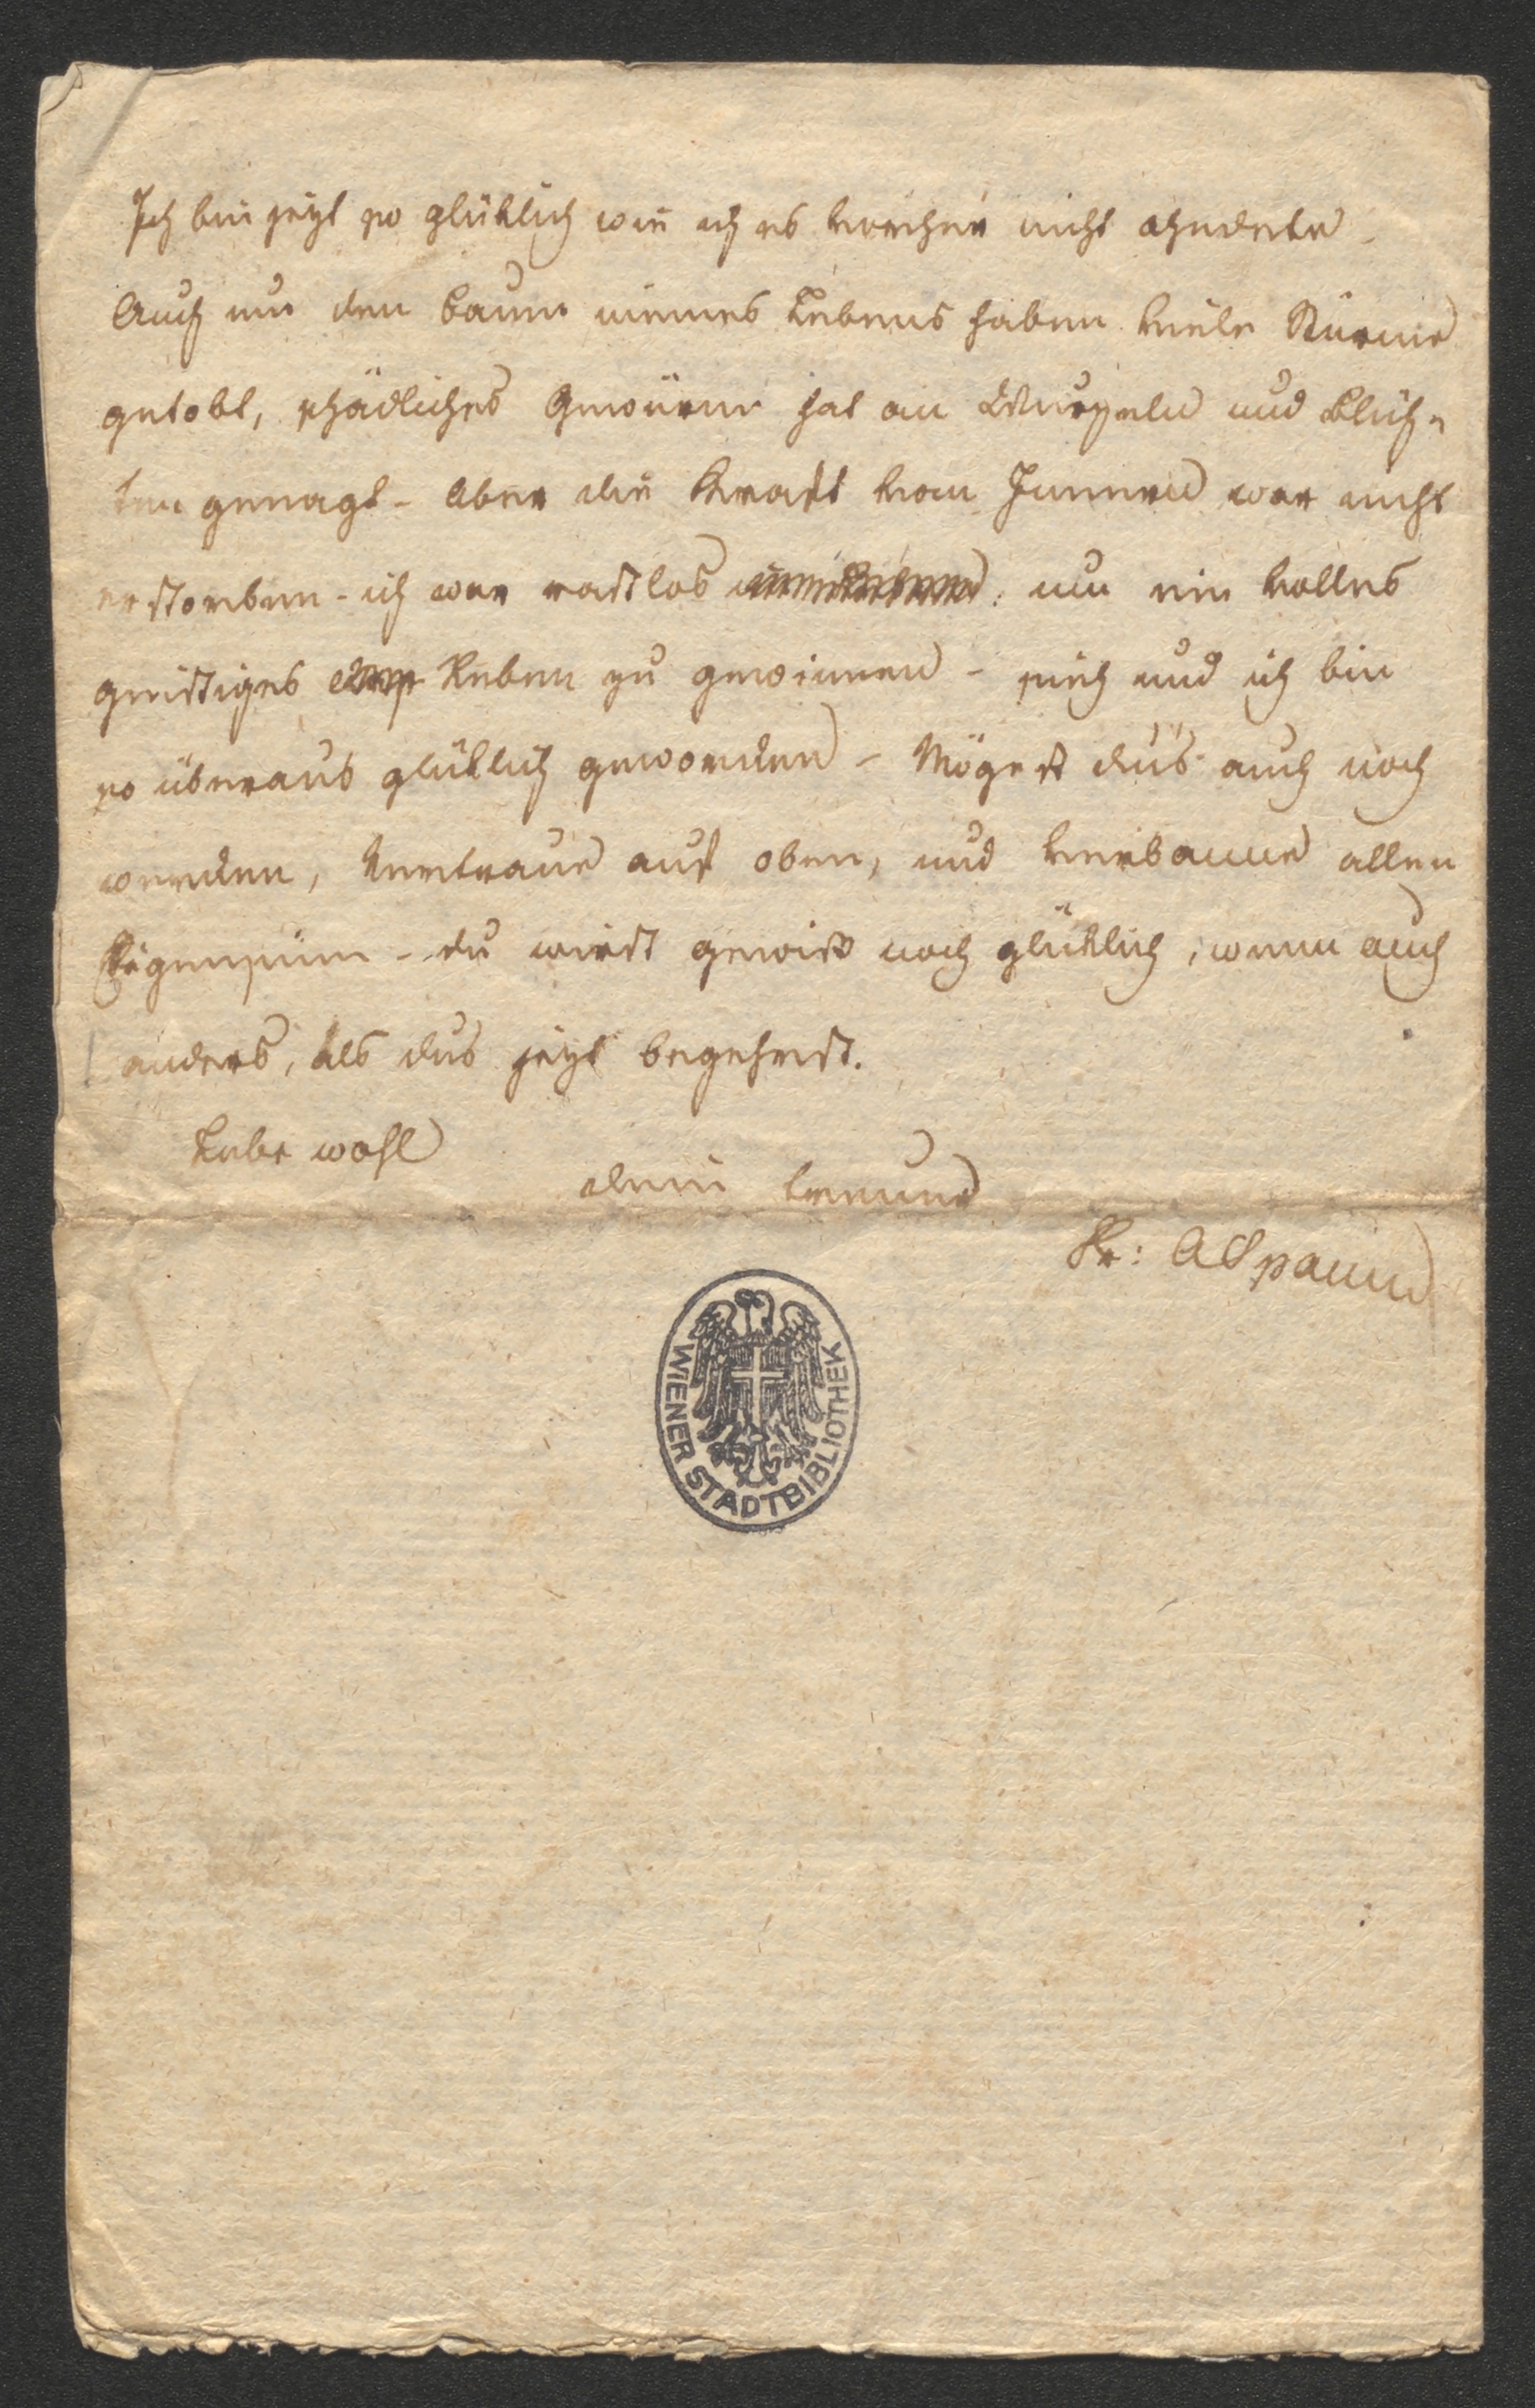 Ich bin jezt so glüklich wie ich es vorher nicht ahndete
Auch um den Baum meines Lebens haben viele Stürme
getobt, schädliches Gewürm hat an Wurzeln und Blüh-
ten genagt - Aber die Kraft vom Innern war nicht
erstorben - ich war rastlos um ein volles
geistiges Leben zu gewinnen - sieh und ich bin
so überaus glüklich geworden - Mögest dus auch noch
werden, vertraue auf oben, und verbanne allen
Eigensinn - du wirst gewiß noch glüklich, wenn auch
anders, als dus jezt begehrst.
Lebe wohl
dein treuer
Fr: A Spaun
WIENER STADTBIBLIOTHEK